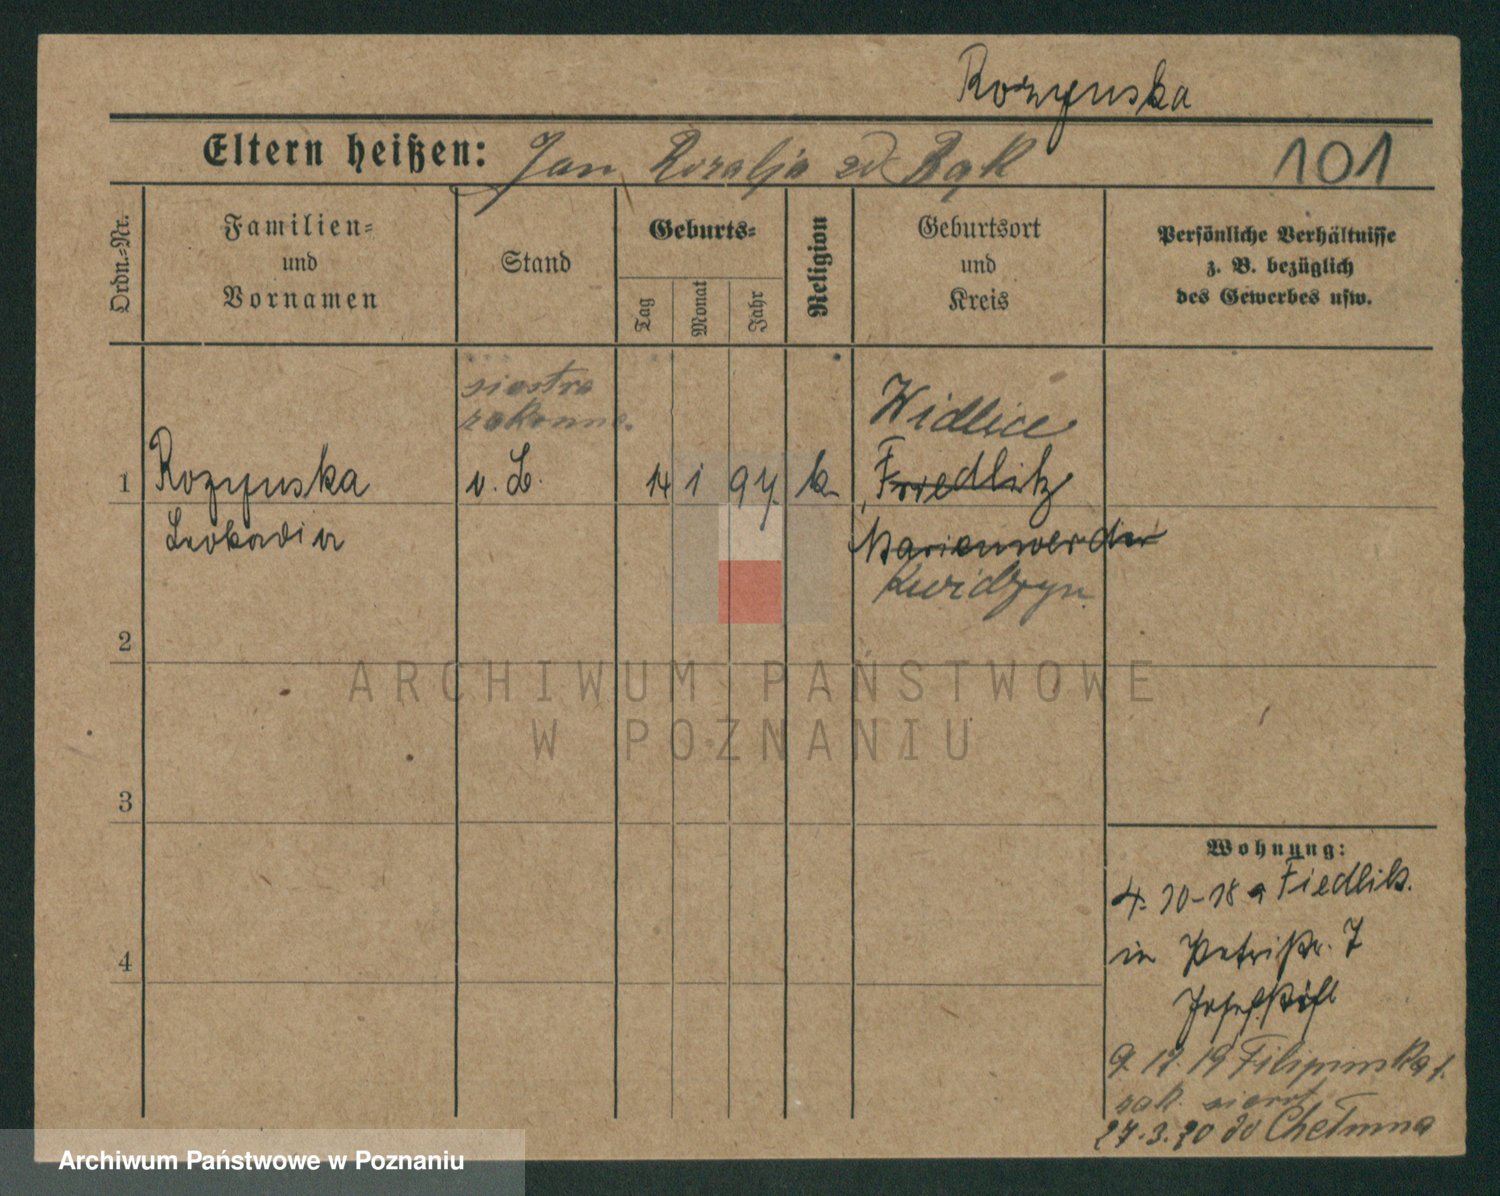 Rozynska
Eltern heißen: Jan Rozalja zd Bąk 101
Ordn.-Nr.
Familien-
und
Vornamen
Stand
Geburts-
Tag
Monat
Jahr
Religion
Geburtsort
und
Kreis
Persönliche Verhältnisse
z. B. bezüglich
des Gewerbes usw.
siostra
zakonna.
Widlice
1 Rozynska v. L. 14 1 97. k. Friedlitz
Leokadia Marienwerder
Kwidzyn
2
ARCHIWUM PAŃSTWOWE
W POZNANIU
3
Wohnung:
4. 10-18 a Fiedlitz.
4 in Petristr. 7
Josefstift
9. 12. 19 Filipinska 1.
zak. siost
27.3.20 do Chełmna
Archiwum Państwowe w Poznaniu